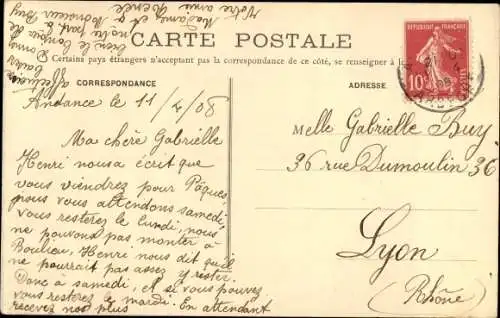 CARTE POSTALE
Certains pays étrangers n'acceptant pas la correspondance de ce côté, se renseigner à la
CORRESPONDANCE
ADRESSE
RÉPUBLIQUE FRANÇAISE
10
Andance le 11/4/08
Ma chère Gabrielle
Henri nous a écrit que
vous viendrez pour Pâques,
nous vous attendons samedi,
vous resterez le lundi, nous
ne pouvons pas monter à
Boulieu, Henri nous dit qu'il
ne pourrait pas assez y rester.
Donc à samedi, et si vous pouvez
vous resterez le mardi. En attendant
recevez nos plus
affectueux
baisers
Donne
bien le bonjour de
notre part à
Madame et à Monsieur Buy
Votre amie
Melle Gabrielle Buy
36 rue Dumoulin 36
Lyon
(Rhône)